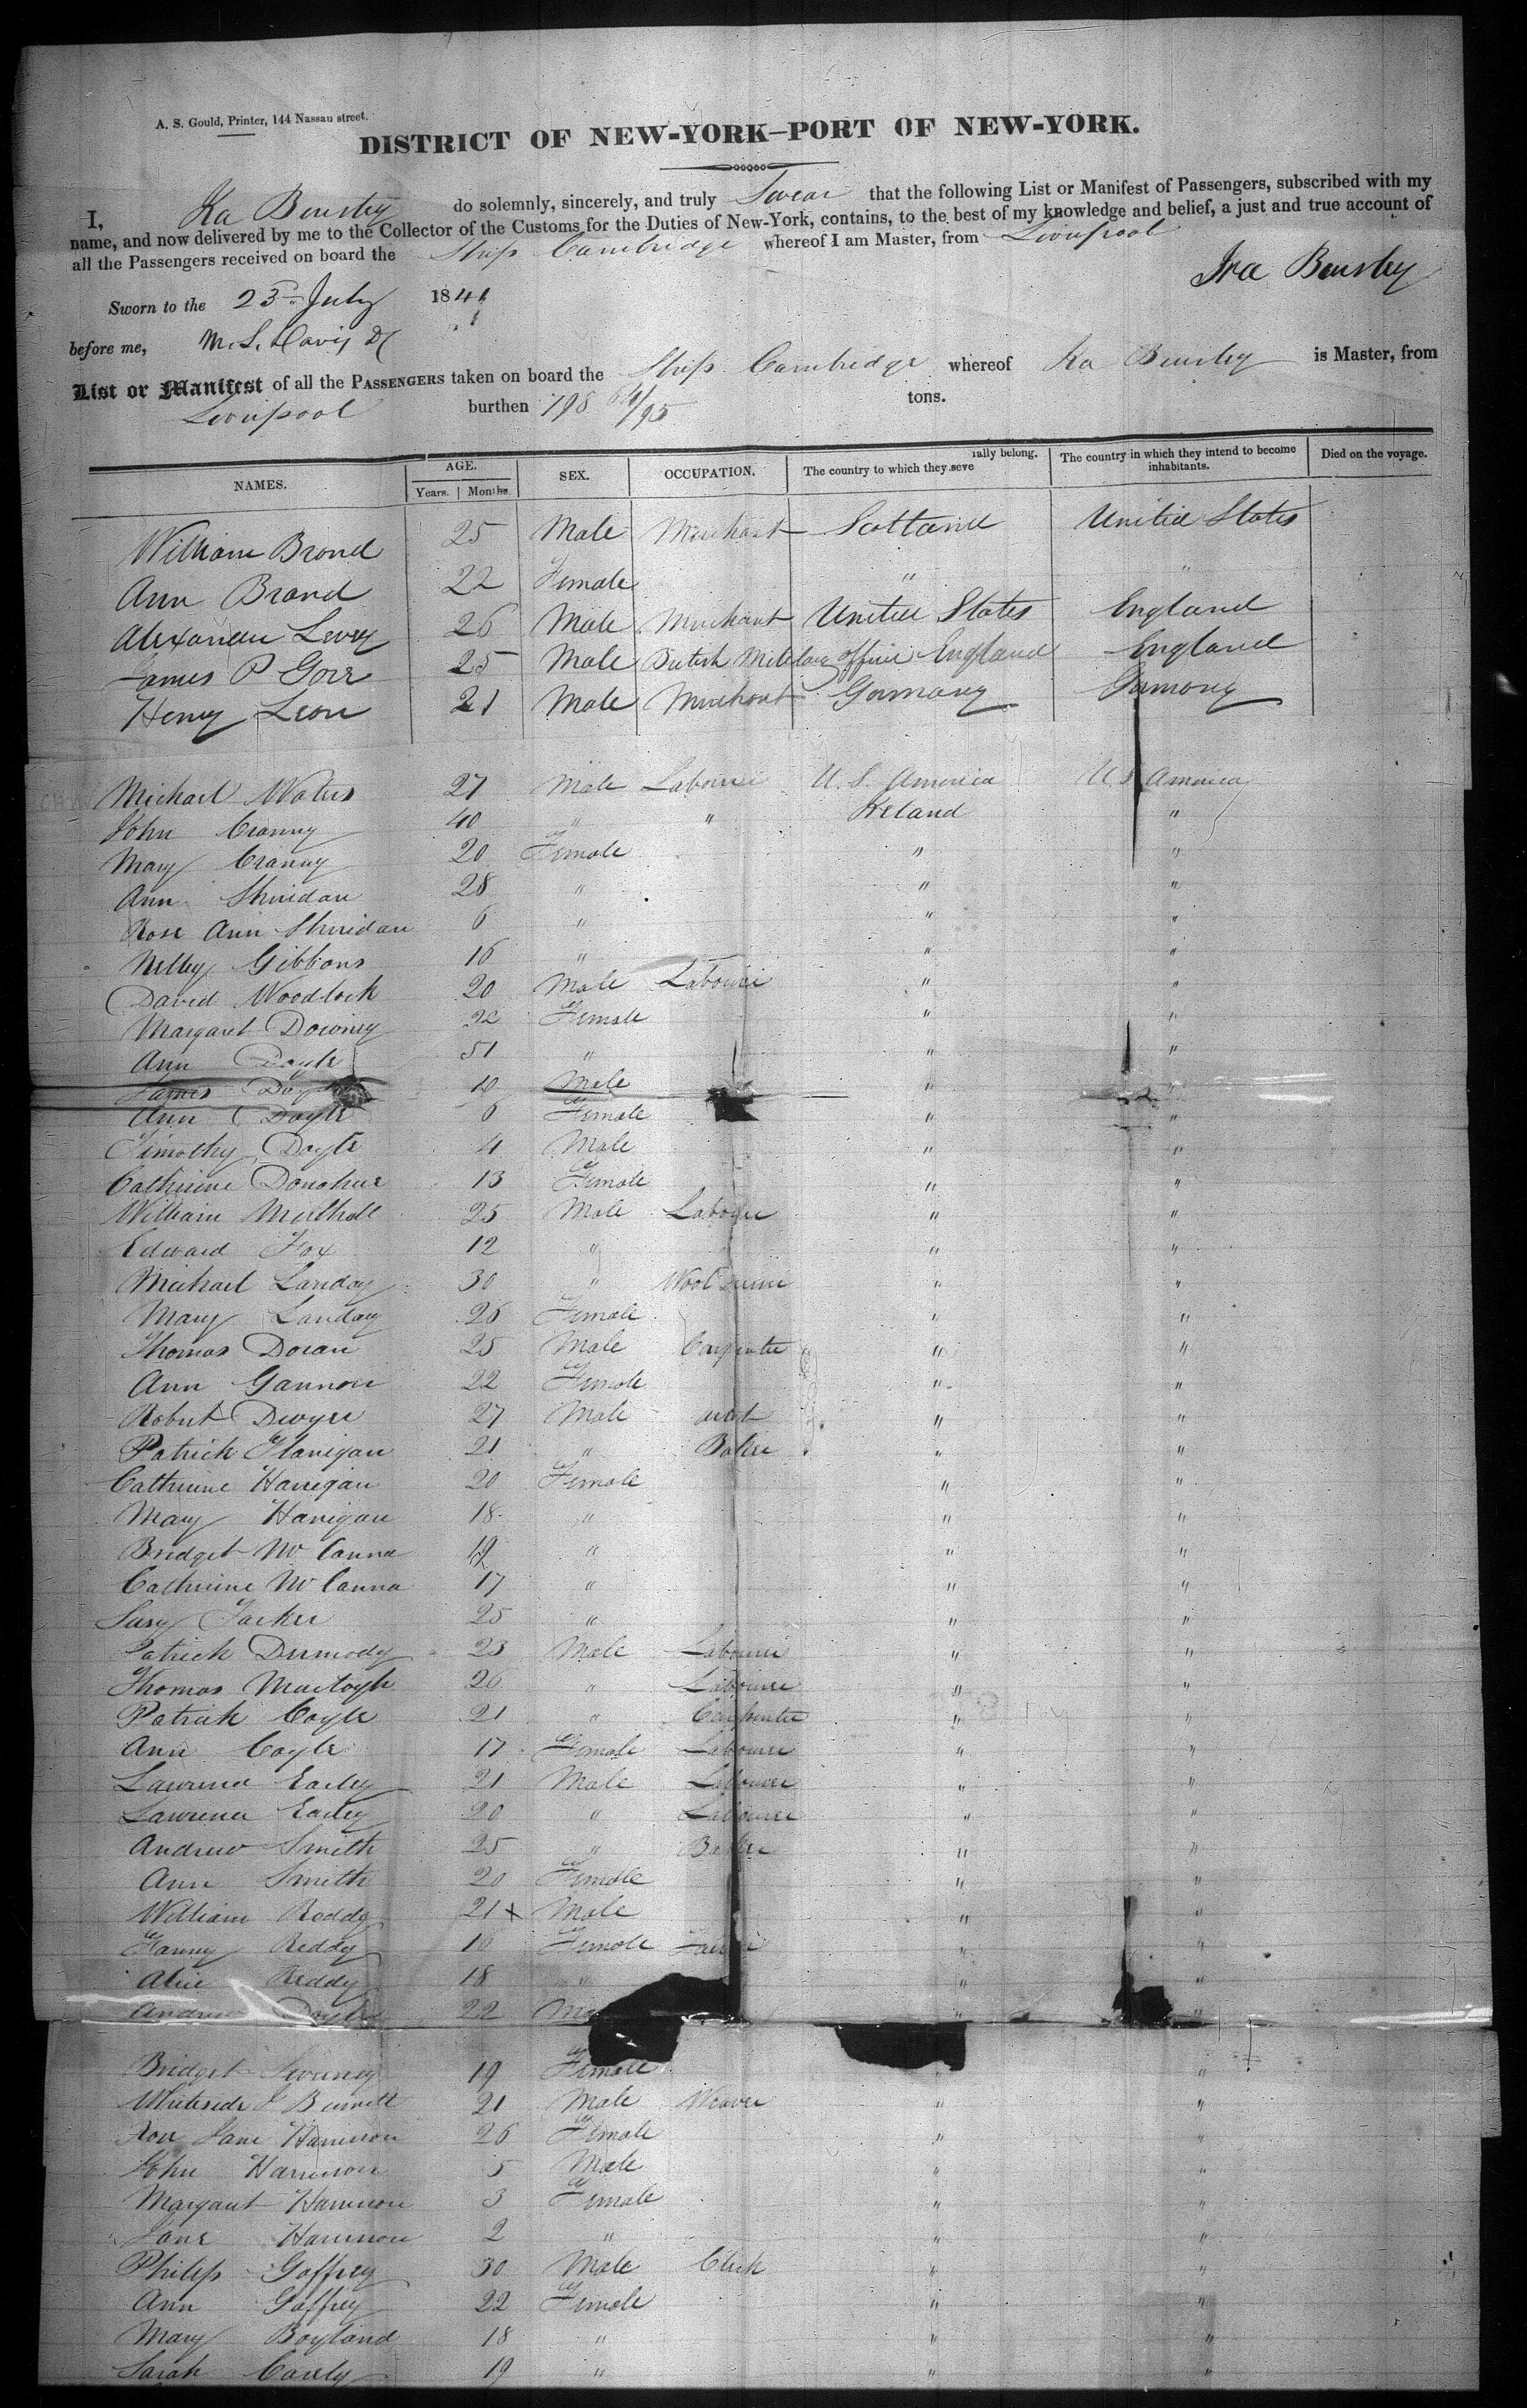 A. S. Gould, Printer, 144 Nassau street.
DISTRICT OF NEW-YORK—PORT OF NEW-YORK.
I, Ira Bursley do solemnly, sincerely, and truly Swear that the following List or Manifest of Passengers, subscribed with my
name, and now delivered by me to the Collector of the Customs for the Duties of New-York, contains, to the best of my knowledge and belief, a just and true account of
all the Passengers received on board the Ship Cambridge whereof I am Master, from Liverpool
Ira Bursley
Sworn to the 23rd July 1841
before me, M. S. Davis
List or Manifest of all the PASSENGERS taken on board the Ship Cambridge whereof Ira Bursley is Master, from
Liverpool burthen 798 /95 tons.
NAMES. AGE. Years. Months. SEX. OCCUPATION. The country to which they severally belong. The country in which they intend to become inhabitants. Died on the voyage.
William Brand 25 Male Merchant Scotland United States
Ann Brand 22 Female " "
Alexander Levey 26 Male Merchant United States England
James P 25 Male British Military officer England England
Henry Leon 21 Male Merchant Germany Germany
Michael Waters 27 Male Labourer U.S. America U.S. America
John Cranny 40 " " Ireland "
Mary Cranny 20 Female " "
Ann Sheridan 28 " " "
Rose Ann Sheridan 6 " " "
Nelley Gibbons 16 " " "
David Woodlock 20 Male Labourer " "
Margaret Downey 22 Female " "
Ann Doyle 51 " " "
James Doyle 10 Male " "
Ann Doyle 6 Female " "
Timothy Doyle 4 Male " "
Catherine Donohue 13 Female " "
William Mulhall 25 Male Labourer " "
Edward Fox 12 " " "
Michael Landay 30 " Wool " "
Mary Landay 26 Female " "
Thomas Doran 25 Male Carpenter " "
Ann Gannon 22 Female " "
Robert Dwyer 27 Male " "
Patrick Flanigan 21 " Baker " "
Catherine Harrigan 20 Female " "
Mary Harrigan 18 " " "
Bridget McCanna 19 " " "
Catherine McCanna 17 " " "
Farker 25 " " "
Patrick Dermody 23 Male Labourer " "
Thomas Murtogh 26 " Labourer " "
Patrick Coyle 21 " Carpenter " "
Ann Coyle 17 Female Labourer " "
Lawrence Earley 21 Male Labourer " "
Lawrence Earley 20 " Labourer " "
Andrew Smith 25 " Baker " "
Ann Smith 20 Female " "
William Reddy 21 x Male " "
Fanny Reddy 16 Female " "
Alice Reddy 18 " " "
Andrew Doyle 22 " "
Bridget Sweeney 19 Female " "
Whiteside J Burnett 21 Male Weaver " "
Jane Harrison 26 Female " "
John Harrison 5 Male " "
Margaret Harrison 3 Female " "
Jane Harrison 2 " " "
Philip Gaffney 30 Male Clerk " "
Ann Gaffney 22 Female " "
Mary Boyland 18 " " "
Sarah 19 " " "